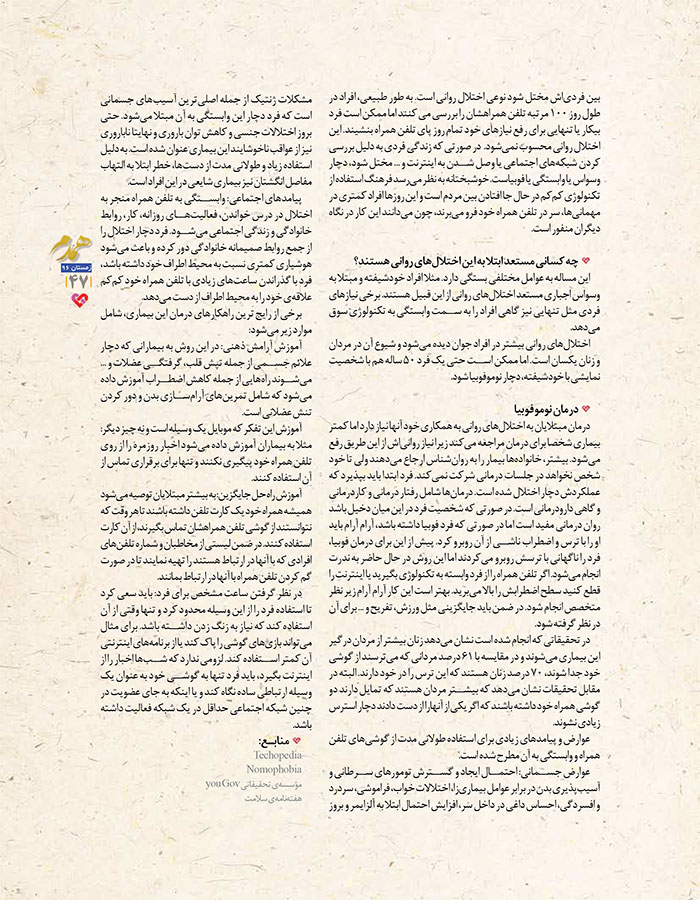 بین فردی‌اش مختل شود نوعی اختلال روانی است. به طور طبیعی، افراد در
طول روز ۱۰۰ مرتبه تلفن همراهشان را بررسی می کنند اما ممکن است فرد
بیکار یا تنهایی برای رفع نیازهای خود تمام روز پای تلفن همراه بنشیند. این
اختلال روانی محسوب نمی‌شود. در صورتی که زندگی فردی به دلیل بررسی
کردن شبکه‌های اجتماعی یا وصل شدن به اینترنت و ... مختل شود، دچار
وسواس یا وابستگی یا فوبیاست. خوشبختانه به نظر می‌رسد فرهنگ استفاده از
تکنولوژی کم کم در حال جا افتادن بین مردم است و این روزها افراد کمتری در
مهمانی‌ها، سر در تلفن همراه خود فرو می‌برند، چون می‌دانند این کار در نگاه
دیگران منفور است.
چه کسانی مستعد ابتلا به این اختلال‌های روانی هستند؟
این مساله به عوامل مختلفی بستگی دارد. مثلا افراد خودشیفته و مبتلا به
وسواس اجباری مستعد اختلال‌های روانی از این قبیل هستند. برخی نیازهای
فردی مثل تنهایی نیز گاهی افراد را به سمت وابستگی به تکنولوژی سوق
می‌دهد.
اختلال‌های روانی بیشتر در افراد جوان دیده می‌شود و شیوع آن در مردان
و زنان یکسان است. اما ممکن است حتی یک فرد ۵۰ ساله هم با شخصیت
نمایشی یا خودشیفته، دچار نوموفوبیا شود.
درمان نوموفوبیا
درمان مبتلایان به اختلال‌های روانی به همکاری خود آنها نیاز دارد اما کمتر
بیماری شخصا برای درمان مراجعه می‌کند زیرا نیاز روانی‌اش از این طریق رفع
می‌شود. بیشتر، خانواده‌ها بیمار را به روان‌شناس ارجاع می‌دهند ولی تا خود
شخص نخواهد در جلسات درمانی شرکت نمی کند. فرد ابتدا باید بپذیرد که
عملکردش دچار اختلال شده است. درمان‌ها شامل رفتار درمانی و کاردرمانی
و گاهی دارودرمانی است. در صورتی که شخصیت فرد در این میان دخیل باشد
روان درمانی مفید است اما در صورتی که فرد فوبیا داشته باشد، آرام آرام باید
او را با ترس و اضطراب ناشی از آن روبرو کرد. پیش از این برای درمان فوبیا،
فرد را ناگهانی با ترسش روبرو می‌کردند اما این روش در حال حاضر به ندرت
انجام می‌شود. اگر تلفن همراه را از فرد وابسته به تکنولوژی بگیرید یا اینترنت را
قطع کنید سطح اضطرابش را بالا می‌برید. بهتر است این کار آرام آرام زیر نظر
متخصص انجام شود. در ضمن باید جایگزینی مثل ورزش، تفریح و ... برای آن
در نظر گرفته شود.
در تحقیقاتی که انجام شده است نشان می‌دهد زنان بیشتر از مردان درگیر
این بیماری می‌شوند و در مقایسه با ۶۱ درصد مردانی که می‌ترسند از گوشی
خود جدا شوند، ۷۰ درصد زنان هستند که این ترس را در خود دارند. البته در
مقابل تحقیقات نشان می‌دهد که بیشتر مردان هستند که تمایل دارند دو
گوشی همراه خود داشته باشند که اگر یکی از آنها را از دست دادند دچار استرس
زیادی نشوند.
عوارض و پیامدهای زیادی برای استفاده طولانی مدت از گوشی‌های تلفن
همراه و وابستگی به آن مطرح شده است.
عوارض جسمانی: احتمال ایجاد و گسترش تومورهای سرطانی و
آسیب‌پذیری بدن در برابر عوامل بیماری‌زا، اختلالات خواب، فراموشی، سردرد
و افسردگی، احساس داغی در داخل سَر، افزایش احتمال ابتلا به آلزایمر و بروز
مشکلات ژنتیک از جمله اصلی‌ترین آسیب‌های جسمانی
است که فرد دچار این وابستگی به آن مبتلا می‌شود. حتی
بروز اختلالات جنسی و کاهش توان باروری و نهایتا ناباروری
نیز از عواقب ناخوشایند این بیماری عنوان شده است. به دلیل
استفاده زیاد و طولانی مدت از دست‌ها، خطر ابتلا به التهاب
مفاصل انگشتان نیز بیماری شایعی در این افراد است.
پیامدهای اجتماعی: وابستگی به تلفن همراه منجر به
اختلال در درس خواندن، فعالیت‌های روزانه، کار، روابط
خانوادگی و زندگی اجتماعی می‌شود. فرد دچار اختلال را
از جمع روابط صمیمانه خانوادگی دور کرده و باعث می‌شود
هوشیاری کمتری نسبت به محیط اطراف خود داشته باشد،
فرد با گذراندن ساعت‌های زیادی با تلفن همراه خود کم کم
علاقه‌ی خود را به محیط اطراف از دست می‌دهد.
برخی از رایج ترین راهکارهای درمان این بیماری، شامل
موارد زیر می‌شود:
آموزش آرامش ذهنی: در این روش به بیمارانی که دچار
علائم جسمی از جمله تپش قلب، گرفتگی عضلات و ...
می‌شوند راه‌هایی از جمله کاهش اضطراب آموزش داده
می‌شود که شامل تمرین‌های آرام‌سازی بدن و دور کردن
تنش عضلانی است.
آموزش این تفکر که موبایل یک وسیله است و نه چیز دیگر:
مثلا به بیماران آموزش داده می‌شود اخبار روزمره را از روی
تلفن همراه خود پیگیری نکنند و تنها برای برقراری تماس از
آن استفاده کنند.
آموزش راه‌حل جایگزین: به بیشتر مبتلایان توصیه می‌شود
همیشه همراه خود یک کارت تلفن داشته باشند تا هر وقت که
نتوانستند از گوشی تلفن همراهشان تماس بگیرند، از آن کارت
استفاده کنند. در ضمن لیستی از مخاطبان و شماره تلفن‌های
افرادی که با آنها در ارتباط هستند را تهیه نمایند تا در صورت
گم کردن تلفن همراه با آنها در ارتباط بمانند.
در نظر گرفتن ساعت مشخص برای فرد: باید سعی کرد
تا استفاده فرد را از این وسیله محدود کرد و تنها وقتی از آن
استفاده کند که نیاز به زنگ زدن داشته باشد. برای مثال
می‌تواند بازی‌های گوشی را پاک کند یا از برنامه‌های اینترنتی
آن کمتر استفاده کند. لزومی ندارد که شب‌ها اخبار را از
اینترنت بگیرد، باید فرد تنها به گوشی خود به عنوان یک
وسیله ارتباطی ساده نگاه کند و یا اینکه به جای عضویت در
چندین شبکه اجتماعی حداقل در یک شبکه فعالیت داشته
باشد.
منابع:
Techopedia
Nomophobia
مؤسسه‌ی تحقیقاتی youGov
هفته‌نامه‌ی سلامت
همدم
زمستان ۹۶
۴۷